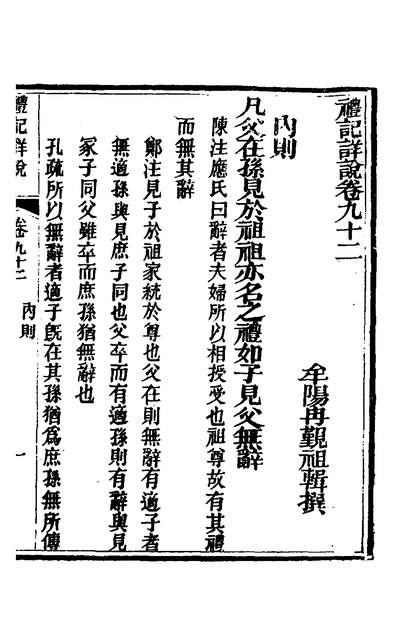 禮記詳說卷九十二
牟陽冉覲祖輯撰
內則
凡父在孫見於祖祖亦名之禮如子見父無辭
陳注應氏曰辭者夫婦所以相授受也祖尊故有其禮
而無其辭
鄭注見子於祖家統於尊也父在則無辭有適子者
無適孫與見庶子同也父卒而有適孫則有辭與見
冢子同父雖卒而庶孫猶無辭也
孔疏所以無辭者適子旣在其孫猶爲庶孫無所傳
禮記詳說
卷九十二
內則
一